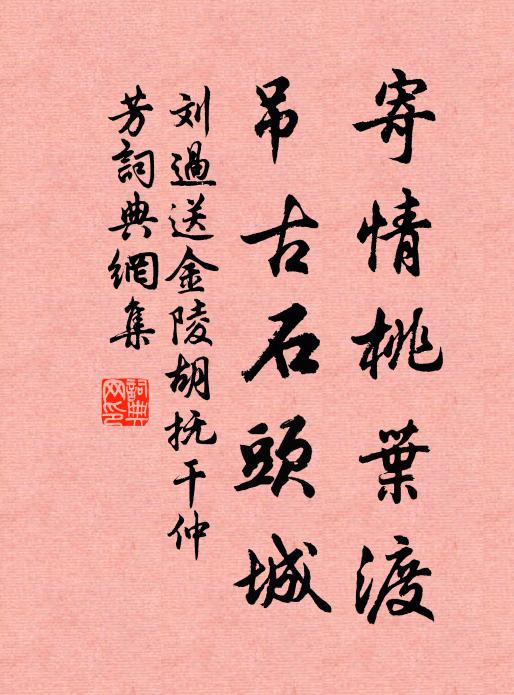 寄情桃葉渡
吊古石頭城
刘過送金陵胡抚干仲
芳詞典網集
詞典
网印